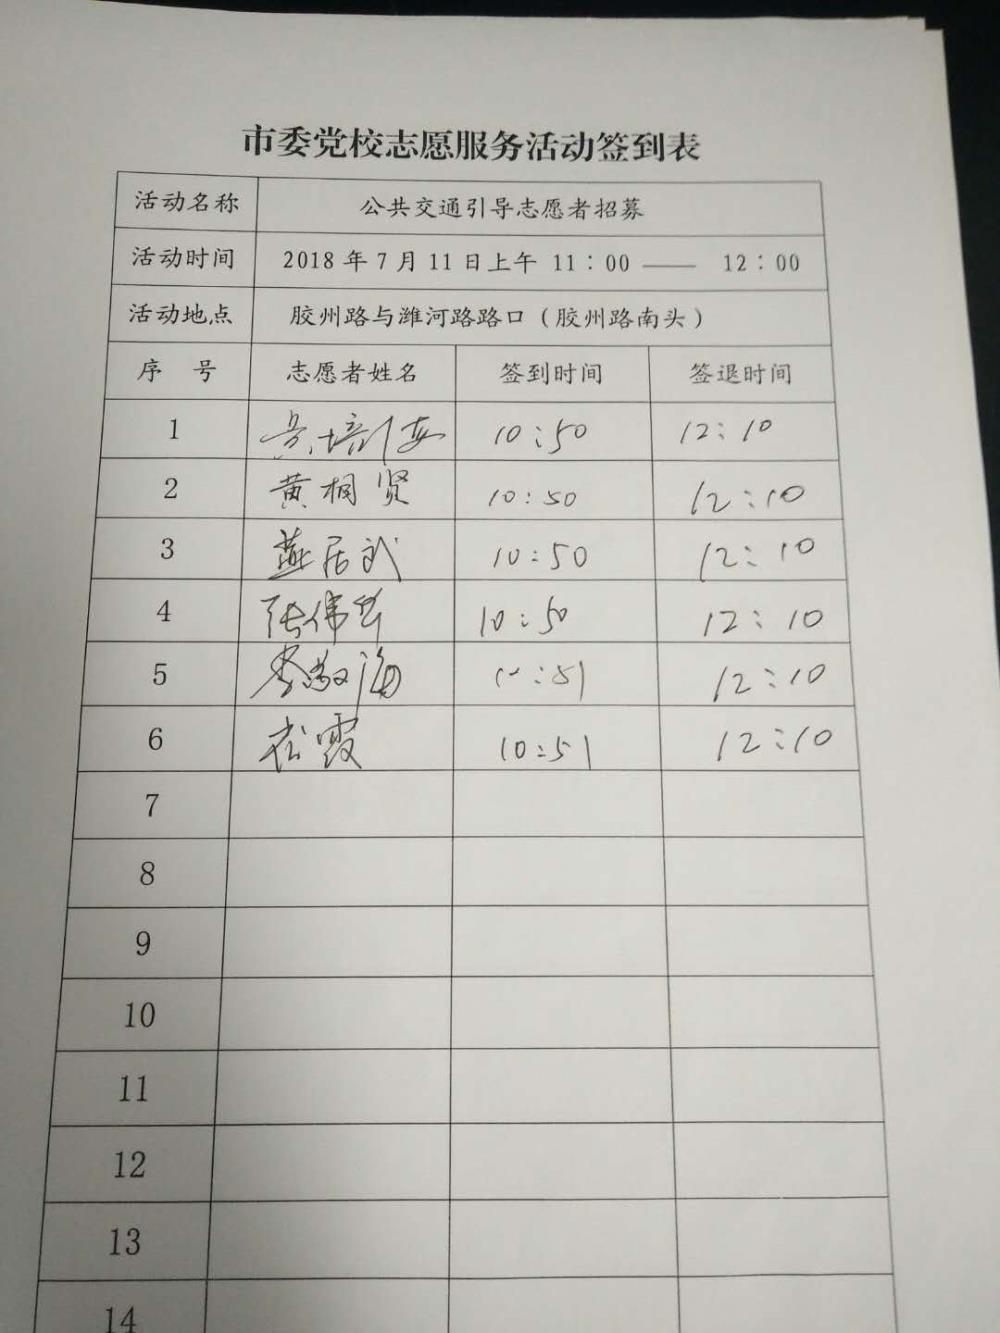 市委党校志愿服务活动签到表
活动名称 公共交通引导志愿者招募
活动时间 2018年7月11日上午 11：00 —— 12：00
活动地点 胶州路与潍河路路口（胶州路南头）
序 号 志愿者姓名 签到时间 签退时间
1 10:50 12:10
2 黄桐贤 10:50 12:10
3 燕居武 10:50 12:10
4 张伟 10:50 12:10
5 海 10:51 12:10
6 霞 10:51 12:10
7
8
9
10
11
12
13
14